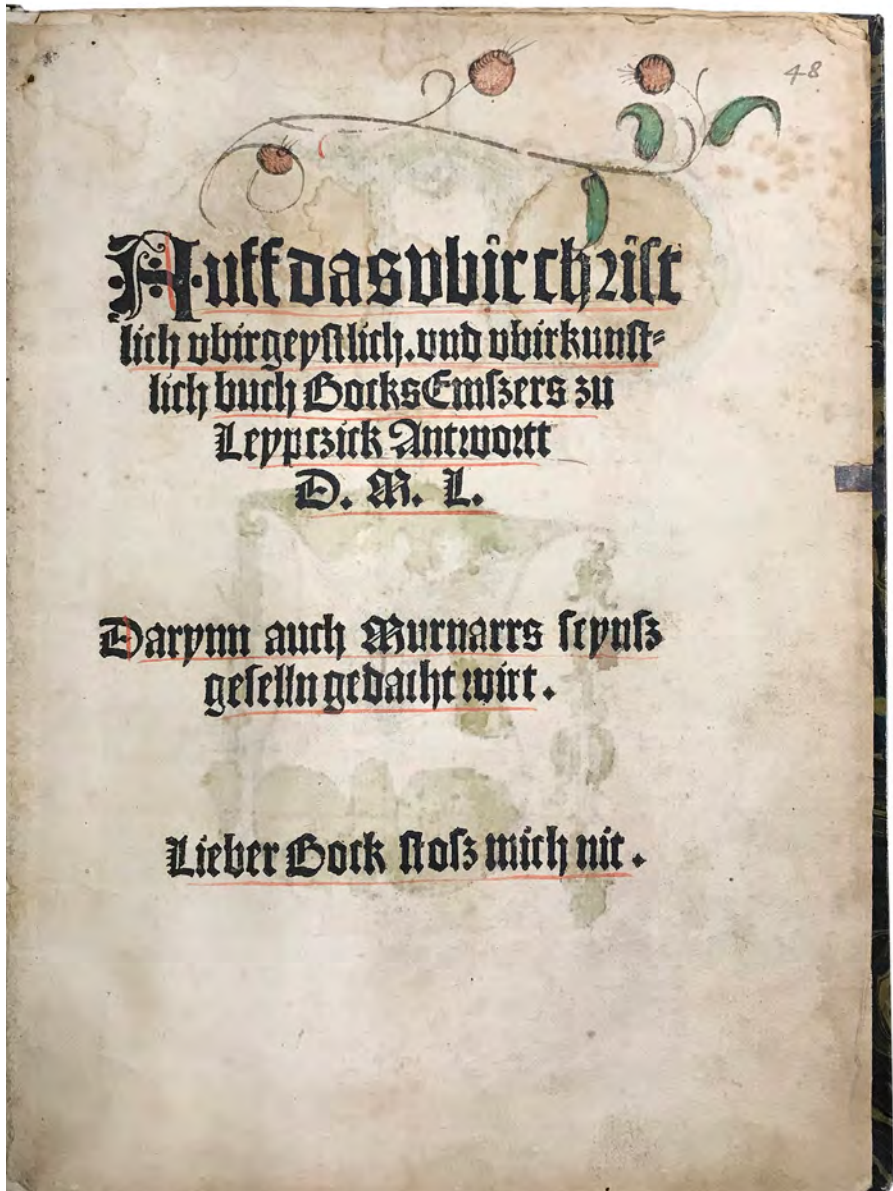 48
Auff das vbir christ
lich vbirgeystlich. vnd vbirkunst-
lich buch Bocks Emszers zu
Leypczick Antwortt
D. M. L.
Darynn auch Murnarrs seynsz
geselln gedacht wirt.
Lieber Bock stosz mich nit.